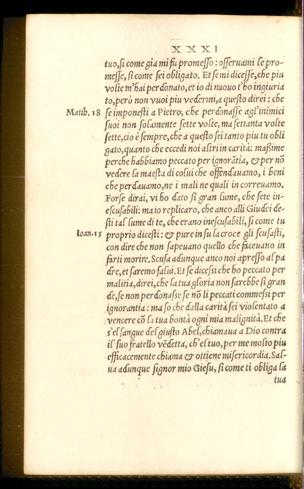 XXXI
tuo, si come gia mi fu promesso: osseruami le pro-
messe, si come sei obligato. Et se mi dicesse, che piu
volte m'hai perdonato, et io di nuouo t'ho ingiuria
to, però non vuoi piu vedermi, a questo direi: che
Matth. 18 se imponesti a Pietro, che perdonasse agl'inimici
suoi non solamente sette volte, ma settanta volte
sette, cio è sempre, che a questo sei tanto piu tu obli
gato, quanto che eccedi noi altri in carità: maßime
perche habbiamo peccato per ignorãtia, & per nõ
vedere la maesta di colui che offendauamo, i beni
che perdauamo, ne i mali ne quali in correuamo.
Forse dirai, vi ho dato si gran lume, che sete in-
escusabili: ma io replicaro, che anco alli Giudei de-
sti tal lume di te, che erano inescusabili, si come tu
Ioan. 15 proprio dicesti: & pure in su la croce gli scusasti,
con dire che non sapeuano quello che faceuano in
farti morire. Scusa adunque anco noi apresso al pa
dre, et saremo salui. Et se dicesti che ho peccato per
malitia, direi, che la tua gloria non sarebbe sì gran
de, se non perdonasse se nõ li peccati commessi per
ignorantia: ma so che dalla carità sei violentato a
vencere cõ la tua bontà ogni mia malignità. Et che
s'el sangue del giusto Abel, chiamaua a Dio contra
il suo fratello vẽdetta, ch'el tuo, per me molto piu
efficacemente chiama & ottiene misericordia. Sal-
ua adunque signor mio Giesu, si come ti obliga la
tua